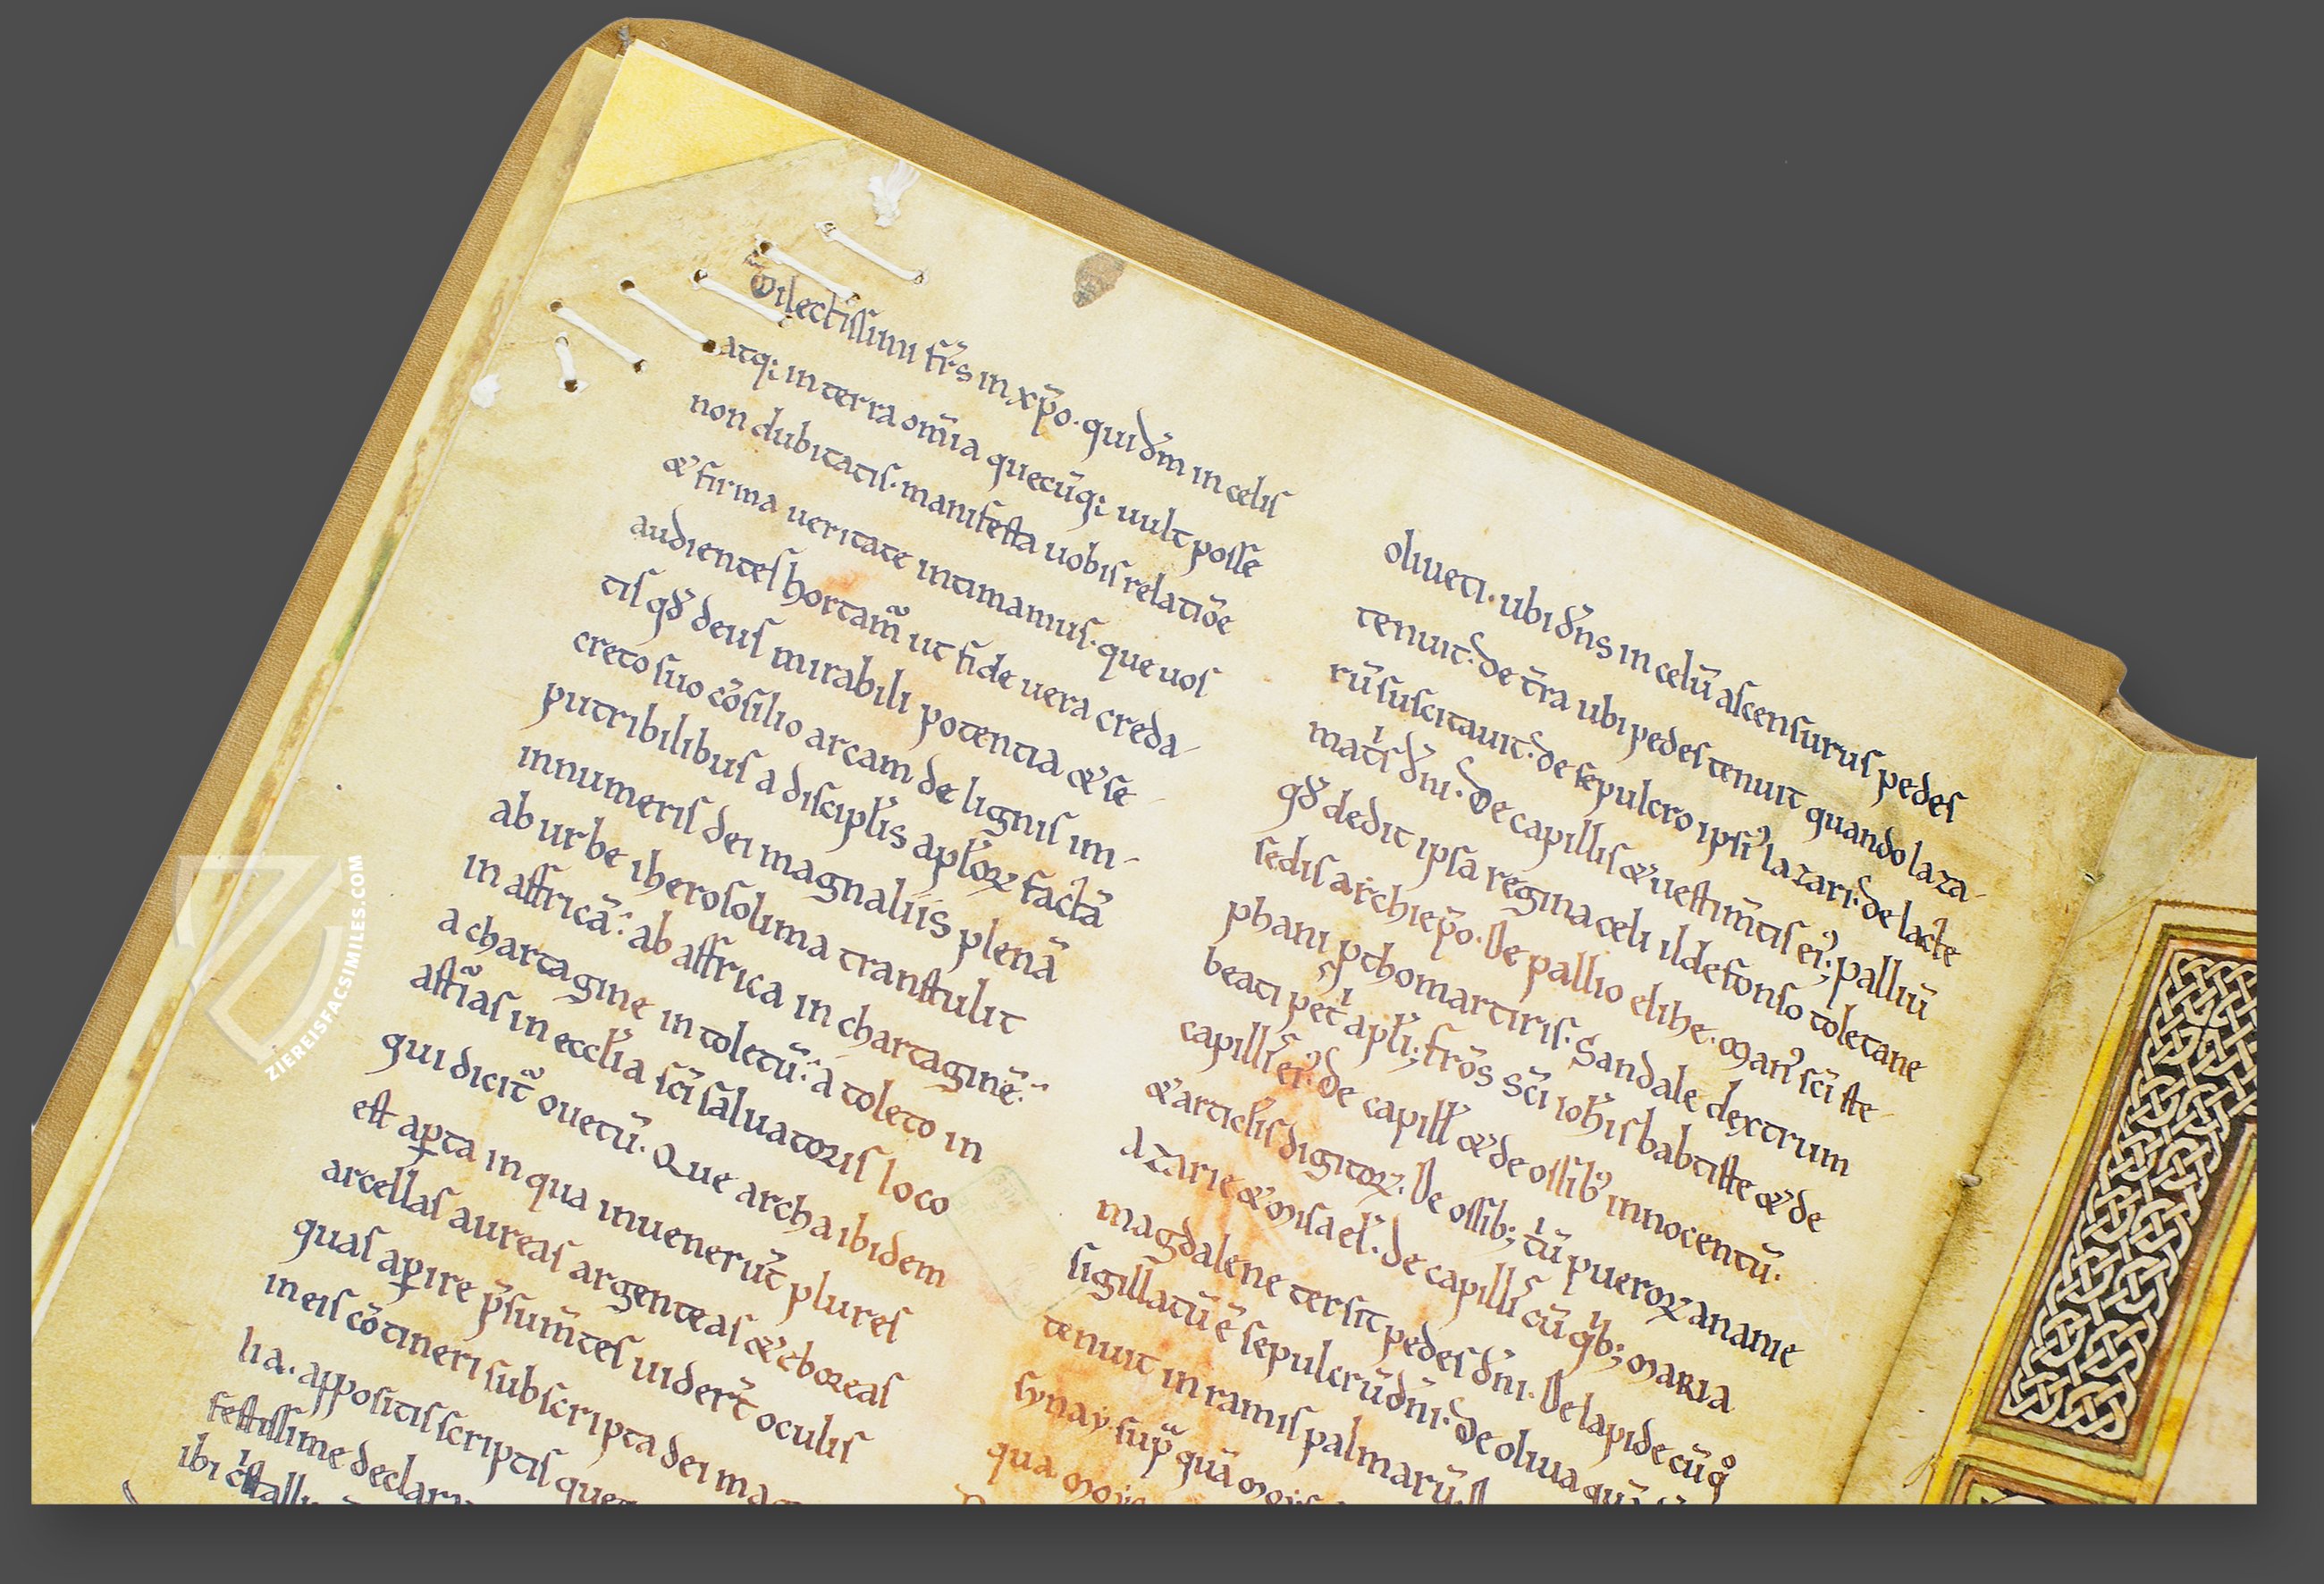 Dilectissimi fr̄s in xp̄o. qui dm̄ in celis
atq; in terra om̄ia quecūq; uult posse
non dubitatis. manifesta uobis relatiōe
& firma ueritate intimamus. que uos
audientes hortam̄ ut fide uera creda-
tis qđ deus mirabili potentia & se
creto suo cōsilio arcam de lignis im-
putribilibus a discipl̄is apl̄oꝝ factā
innumeris dei magnaliis plenā
ab urbe iherosolima transtulit
in affricā: ab affrica in chartaginē:
a chartagine in toletū: a toleto in
astīas in eccl̄ia sc̄i saluatoris loco
qui dicit̄ ouetū. Que archa ibidem
est aꝑta in qua inuenerūt plures
arcellas aureas argenteas & eboreas
quas aꝑire p̄sum̄tes uider̄t oculis
in eis cōtineri subscripta dei mag
lia. appositis scriptis que
festissime declar
ibi
oliueti. ubi dn̄s in celū ascensurus pedes
tenuit: de t̄ra ubi pedes tenuit quando laza-
rū suscitauit: de sepulcro ipsi⁹ lazari: de lacte
mat̄s dn̄i. De capillis & uestim̄tis ei⁹; palliū
qđ dedit ipsa regina celi ildefonso toletane
sedis archiep̄o. De pallio elihe. Man⁹ sc̄i ste
phani ꝓthomartiris. Sandale dextrum
beati pet apl̄i; frōs sc̄i ioh̄is babtiste & de
capillis ei⁹: De capill̄ & de ossib⁹ innocentū.
& articl̄is digitoꝝ. De ossib; tū pueroꝝ ananie
azarie & misael̄. De capillis cū qib; MARIA
magdalene tersit pedes dn̄i. De lapide cū qo
sigillatū ē sepulcrū dn̄i. De oliua quā
tenuit in ramis palmarū. D
synay sup̄ quā moys
qua moyses
ZIEREISFACSIMILES.COM